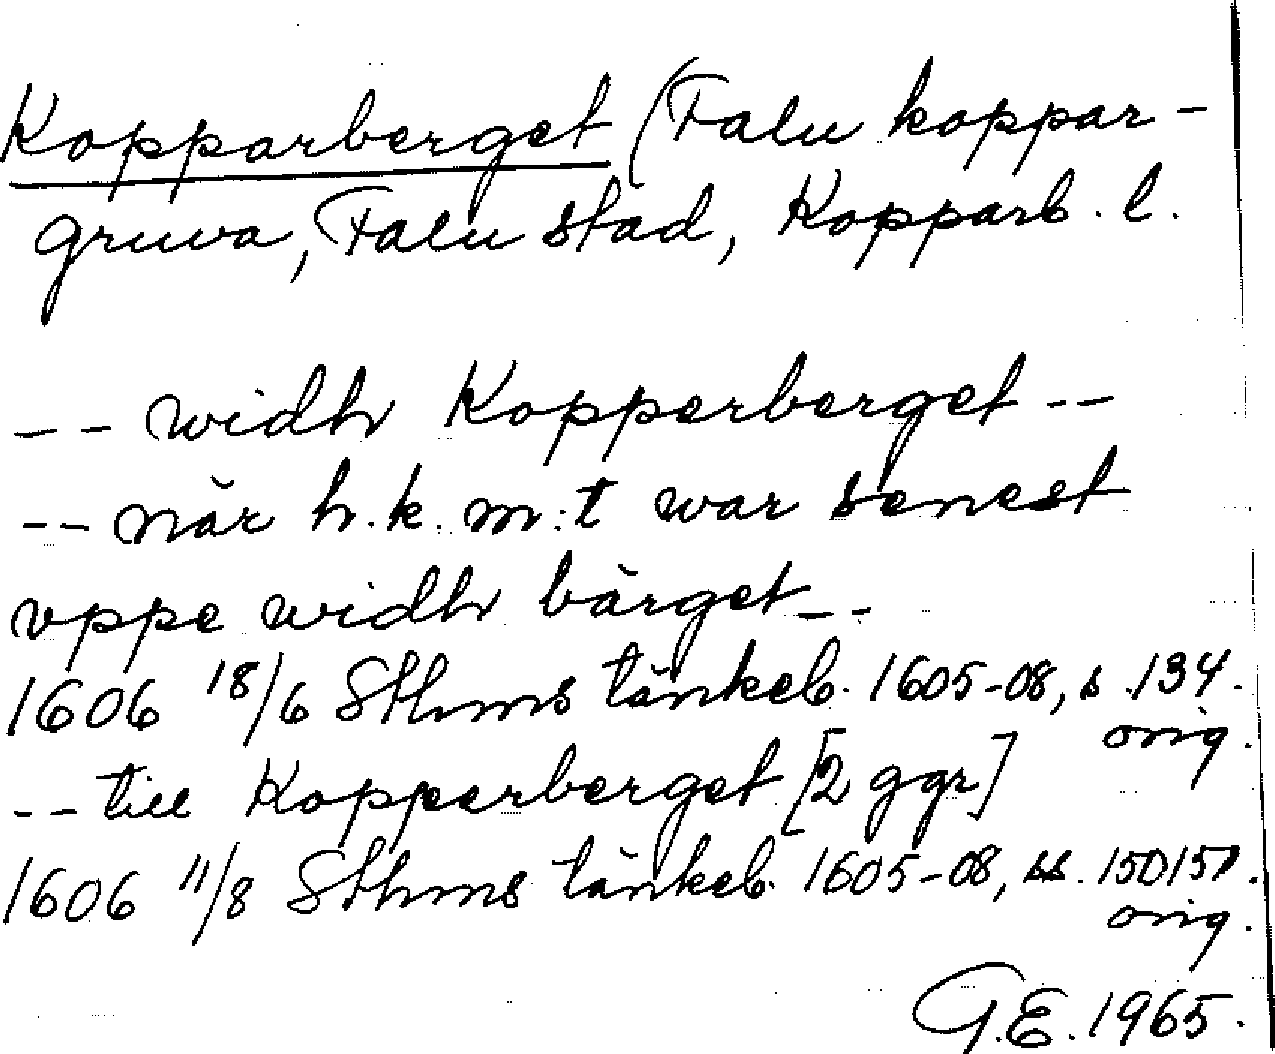 Kopparberget (Falu koppar-
gruva, Falu stad, Kopparb. l.
-- widh Kopperberget --
-- når h. k. m:t war senest
vppe widh bärget --
1606 18/6 Sthms tänkeb. 1605-08, s. 134.
orig.
-- till Kopperberget [2 ggr]
1606 11/8 Sthms tänkeb. 1605-08, ss. 150, 151.
orig.
G.E. 1965.